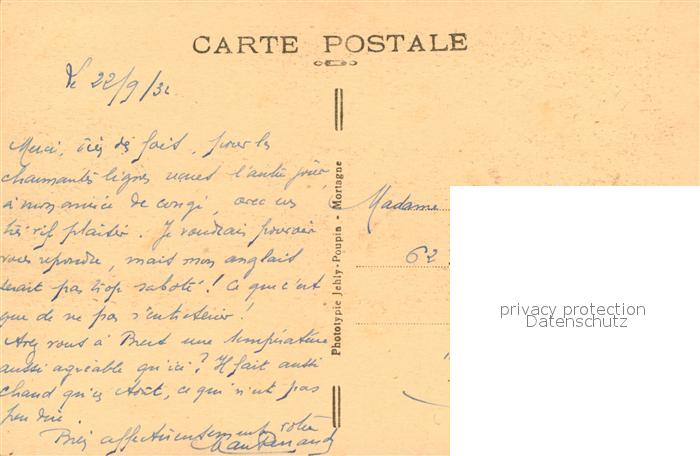 CARTE POSTALE
le 22/9/32
Merci, très dé fait, pour les
charmantes lignes reçues l'autre jour,
à mon arrivée de congé, avec un
très vif plaisir. Je voudrais pouvoir
vous répondre, mais mon anglais
serait pas trop saboté! Ce que c'est
que de ne pas s'entretenir!
Avez vous à Brest une température
aussi agréable qu'ici? Il fait aussi
chaud qu'en Août, ce qui n'est pas
peu dire.
Bien affectueusement votre
Phototypie Jehly-Poupin - Mortagne
Madame
62
privacy protection
Datenschutz